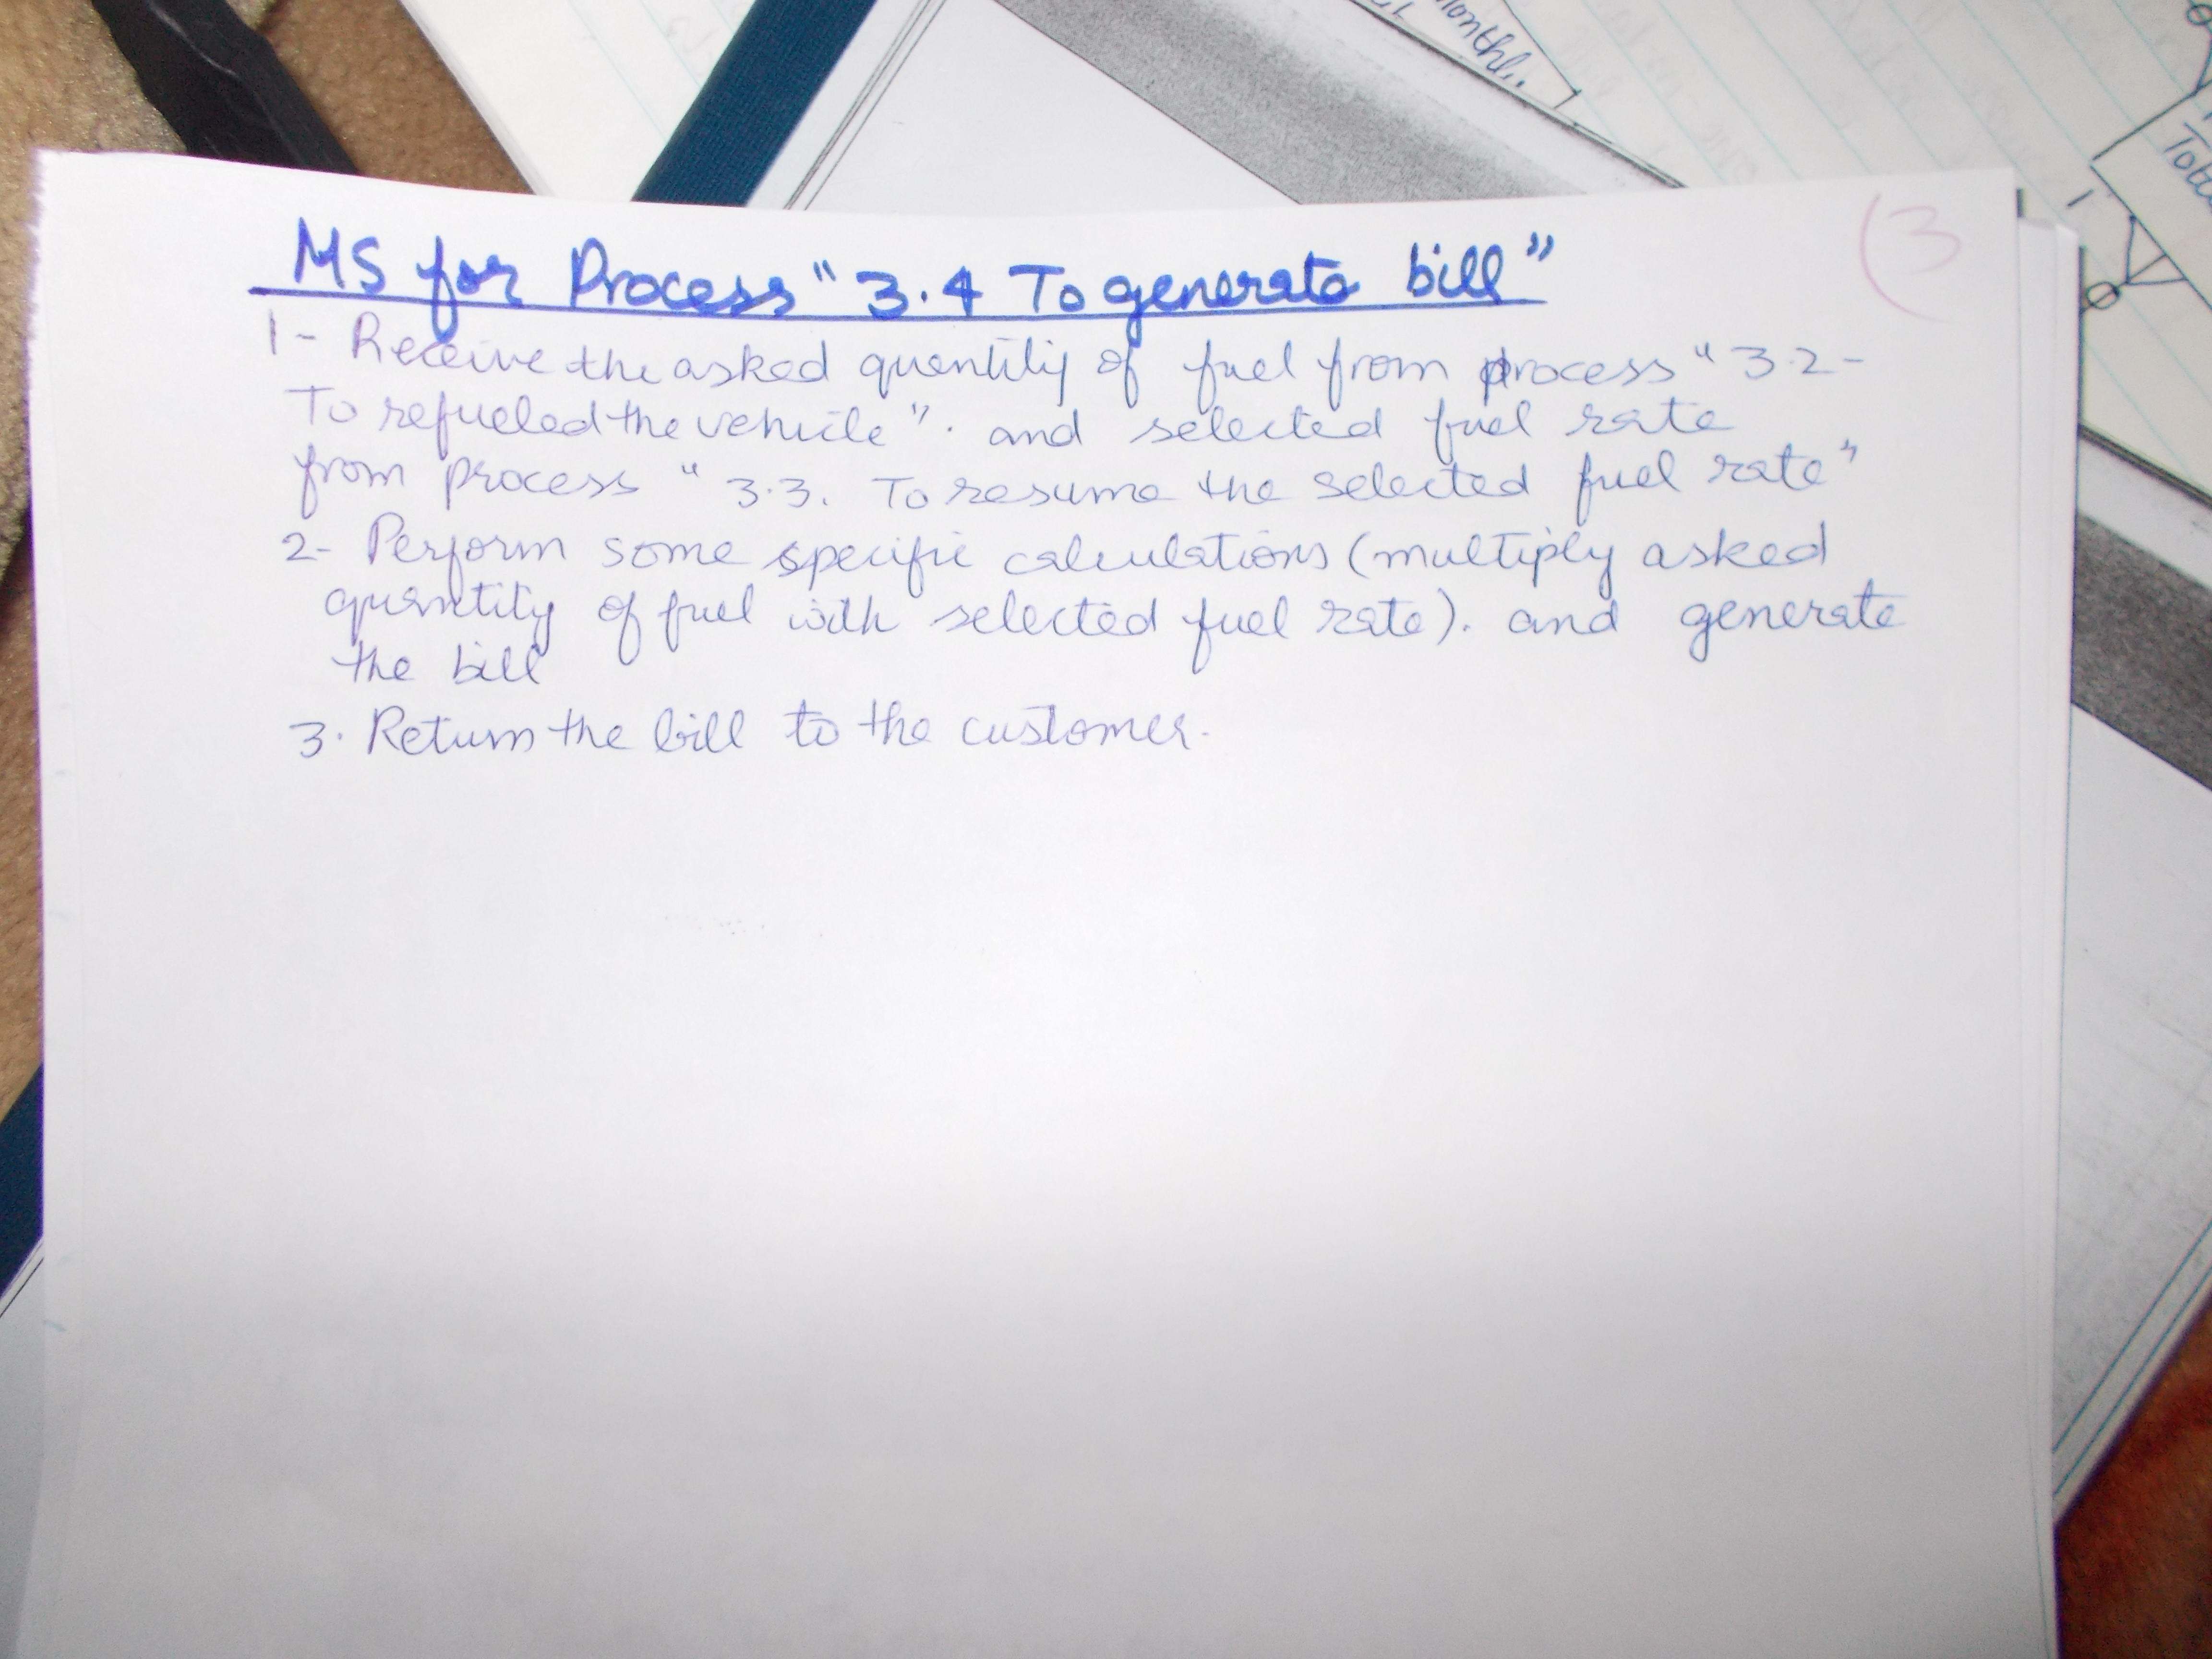 Monthl
Tota
(3
MS for Process "3.4 To generate bill"
1- Receive the asked quentitiy of fuel from process "3.2-
To refueled the vehicle". and selected fuel rate
from process "3.3. To resume the selected fuel rate"
2- Perform some specific calculations (multiply asked
quantity of fuel with selected fuel rate). and generate
the bill
3. Return the bill to the customer.